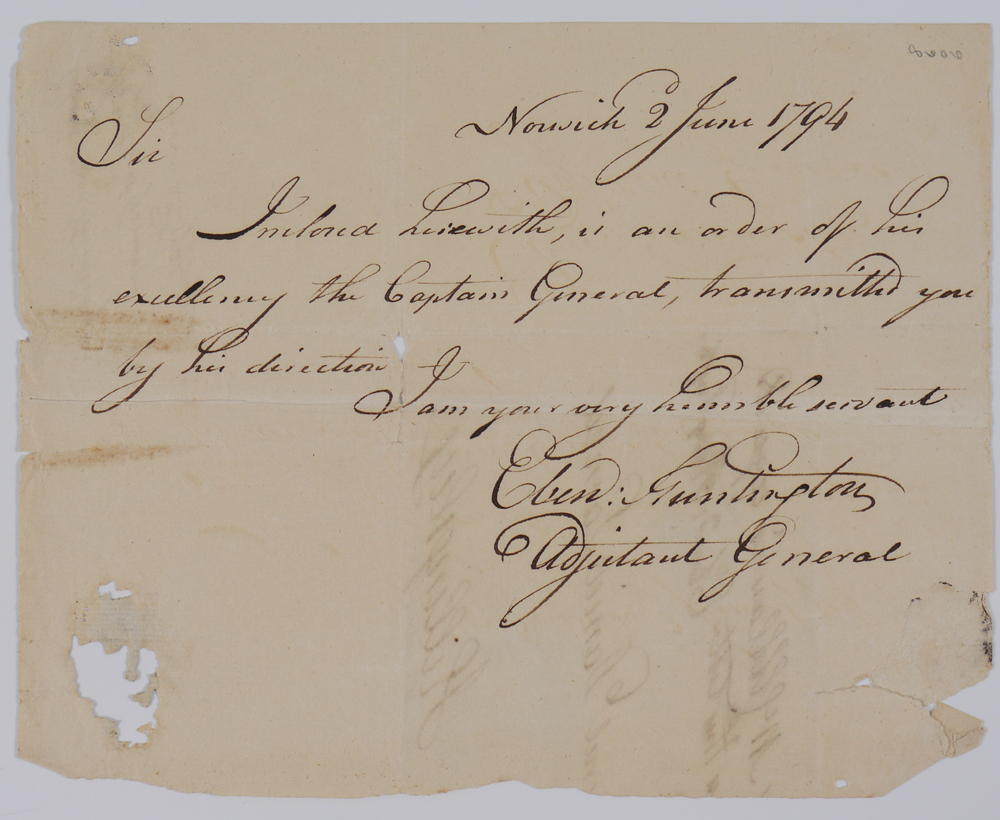 Norwich 2d June 1794
Sir
Inclosed herewith, is an order of his
excellency the Captain General, transmitted you
by his direction I
I am your very humble servant
Eben: Huntington
Adjutant General